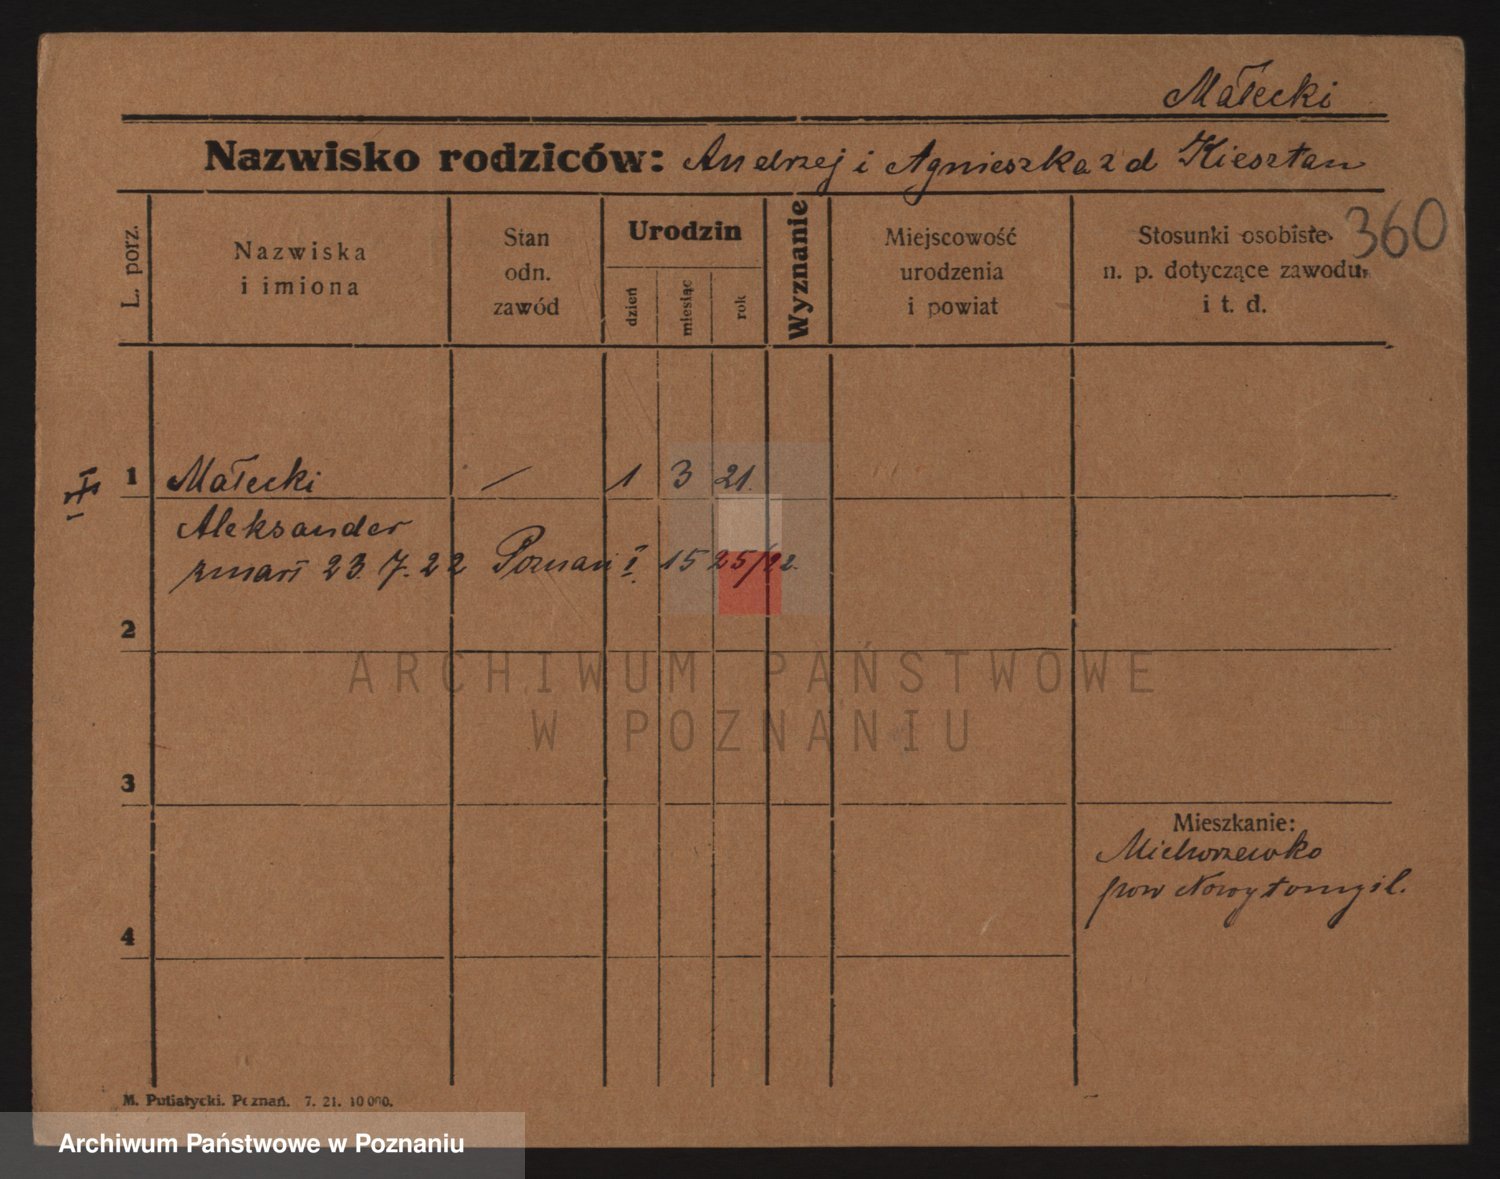 Małecki
Nazwisko rodziców: Andrzej i Agnieszka z d Kiesztan
360
L. porz.
Nazwiska i imiona
Stan odn. zawód
Urodzin
dzień
miesiąc
rok
Wyznanie
Miejscowość urodzenia i powiat
Stosunki osobiste n. p. dotyczące zawodu, i t. d.
1 Małecki — 1 3 21.
Aleksander
zmarł 23.7.22 Poznań I 1525/22.
2
ARCHIWUM PAŃSTWOWE
W POZNANIU
3
Mieszkanie:
Michorzewko
pow Nowytomyśl.
4
M. Putiatycki. Poznań. 7. 21. 10 000.
Archiwum Państwowe w Poznaniu